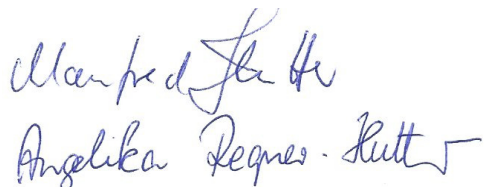 Manfred Hutter
Angelika Regner-Hutter